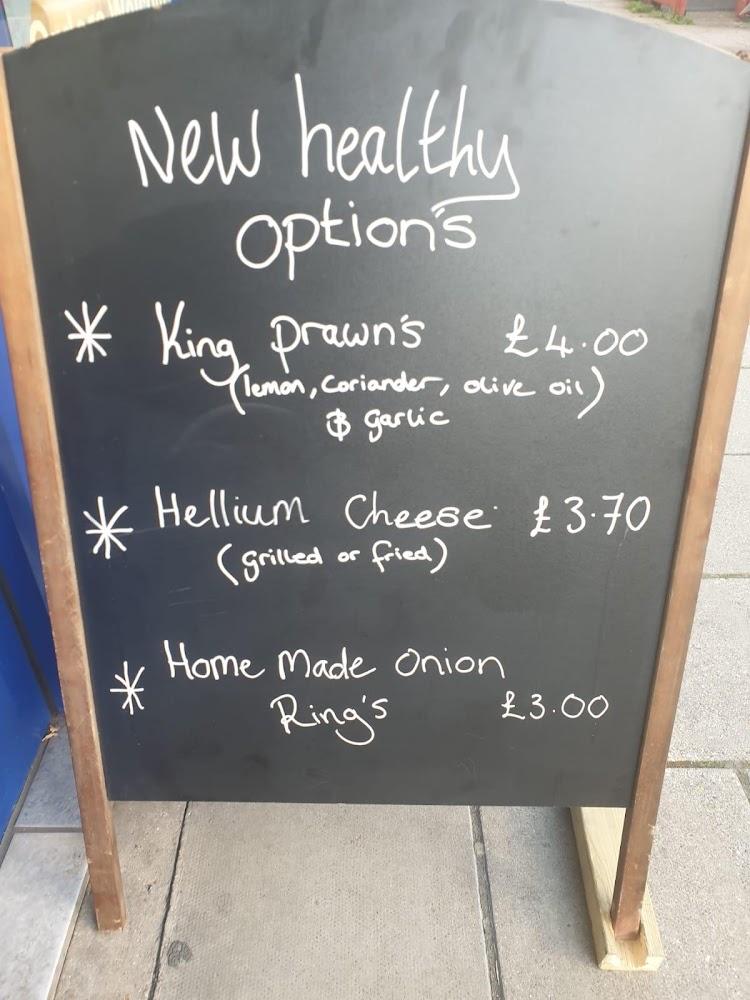 New healthy
option's
* King prawn's £4.00
(lemon, coriander, olive oil)
& garlic
* Hellium Cheese £3.70
(grilled or fried)
* Home Made Onion
Ring's £3.00